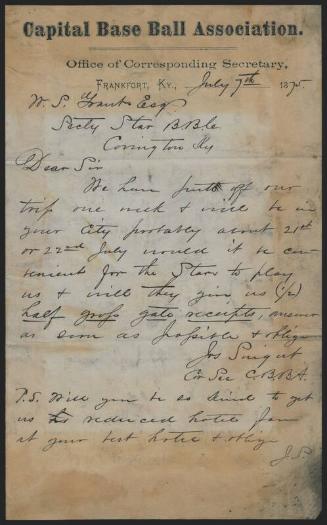 Capital Base Ball Association.
Office of Corresponding Secretary,
FRANKFORT, KY., July 7th 1875.
W. S. Esq
Secty Star B B C
Covington Ky
Dear Sir
We have put off our
trip one week & will be in
your City probably about 21st
or 22nd July would it be con-
venient for the Stars to play
us & will they give us (½)
half gross gate receipts, answer
as soon as possible & oblige
Jos
Cor Sec C.B.B.A.
P.S. Will you be so kind to get
us reduced hotel fare
at your best hotel & oblige
J.S.